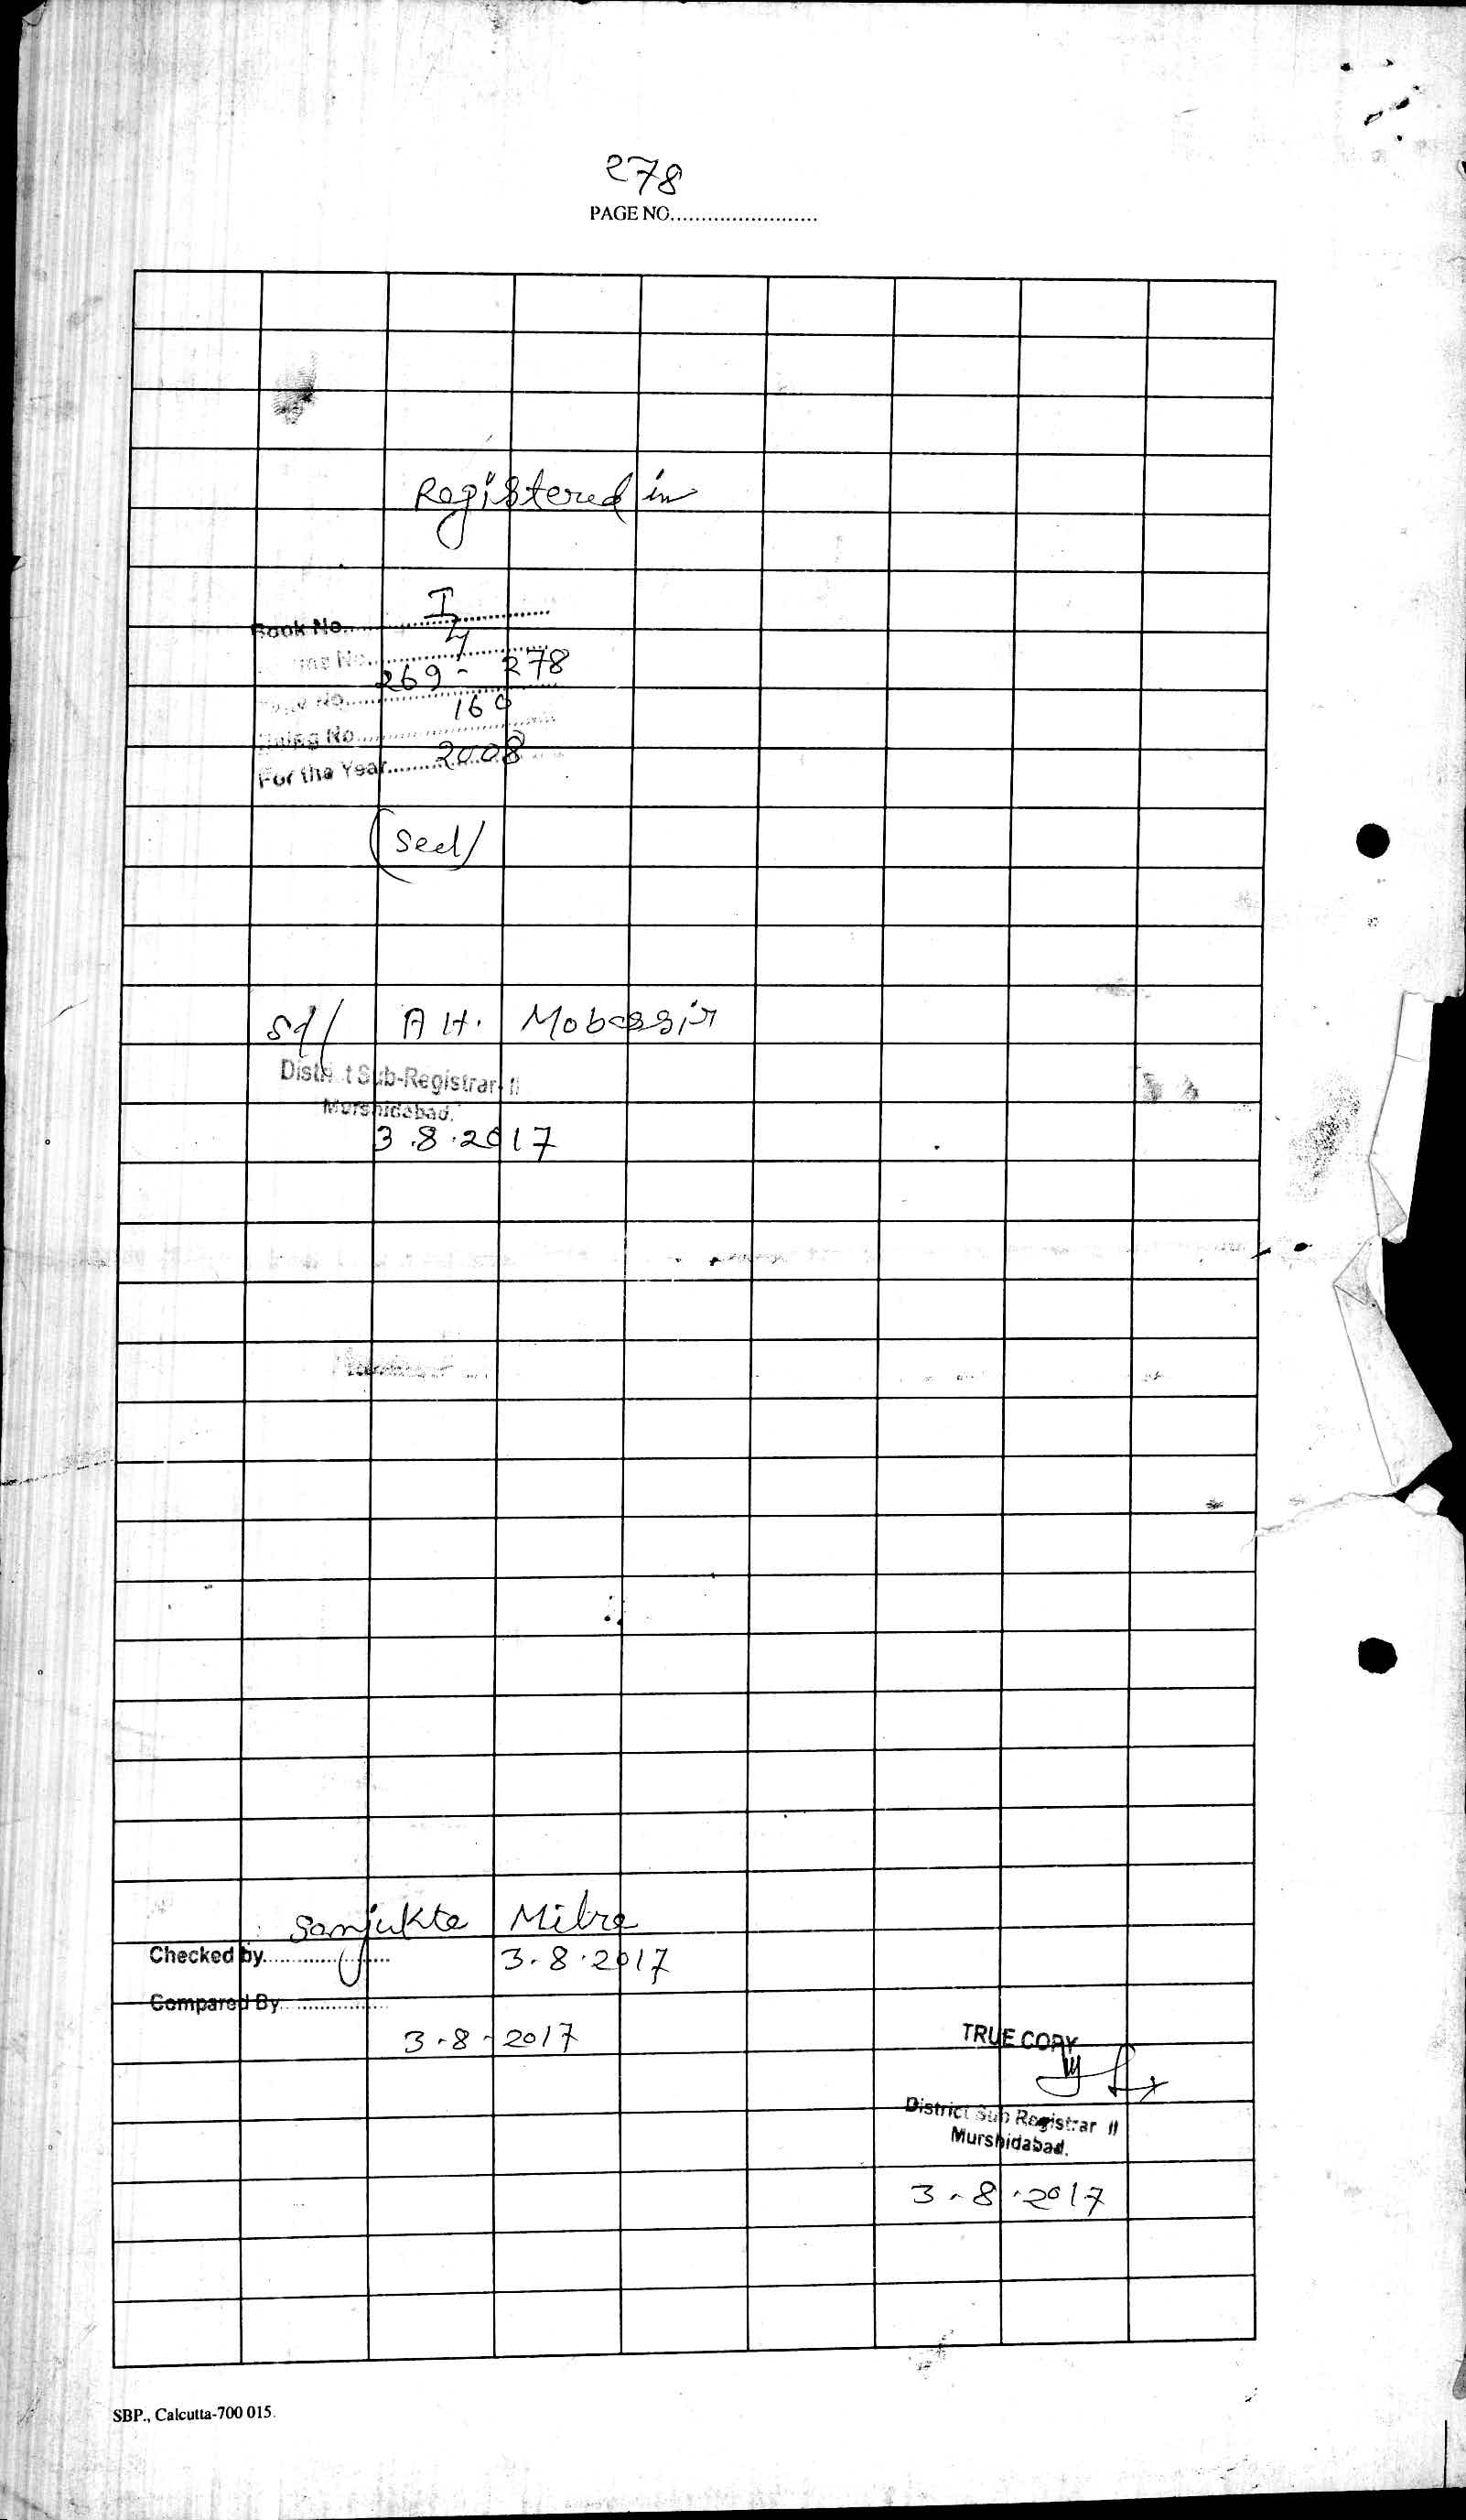 278
PAGE NO.........................
Registered in
Book No. I
No. 4
No. 269 - 278
No. 160
For the Year 2008
(Seal)
Sd/ A H. Mobassir
District Sub-Registrar-II
Murshidabad.
3.8.2017
Sanjukta Mitra
Checked by.................... 3.8.2017
Compared By..................
3-8-2017
TRUE COPY
District Sub Registrar II
Murshidabad.
3-8.2017
SBP., Calcutta-700 015.